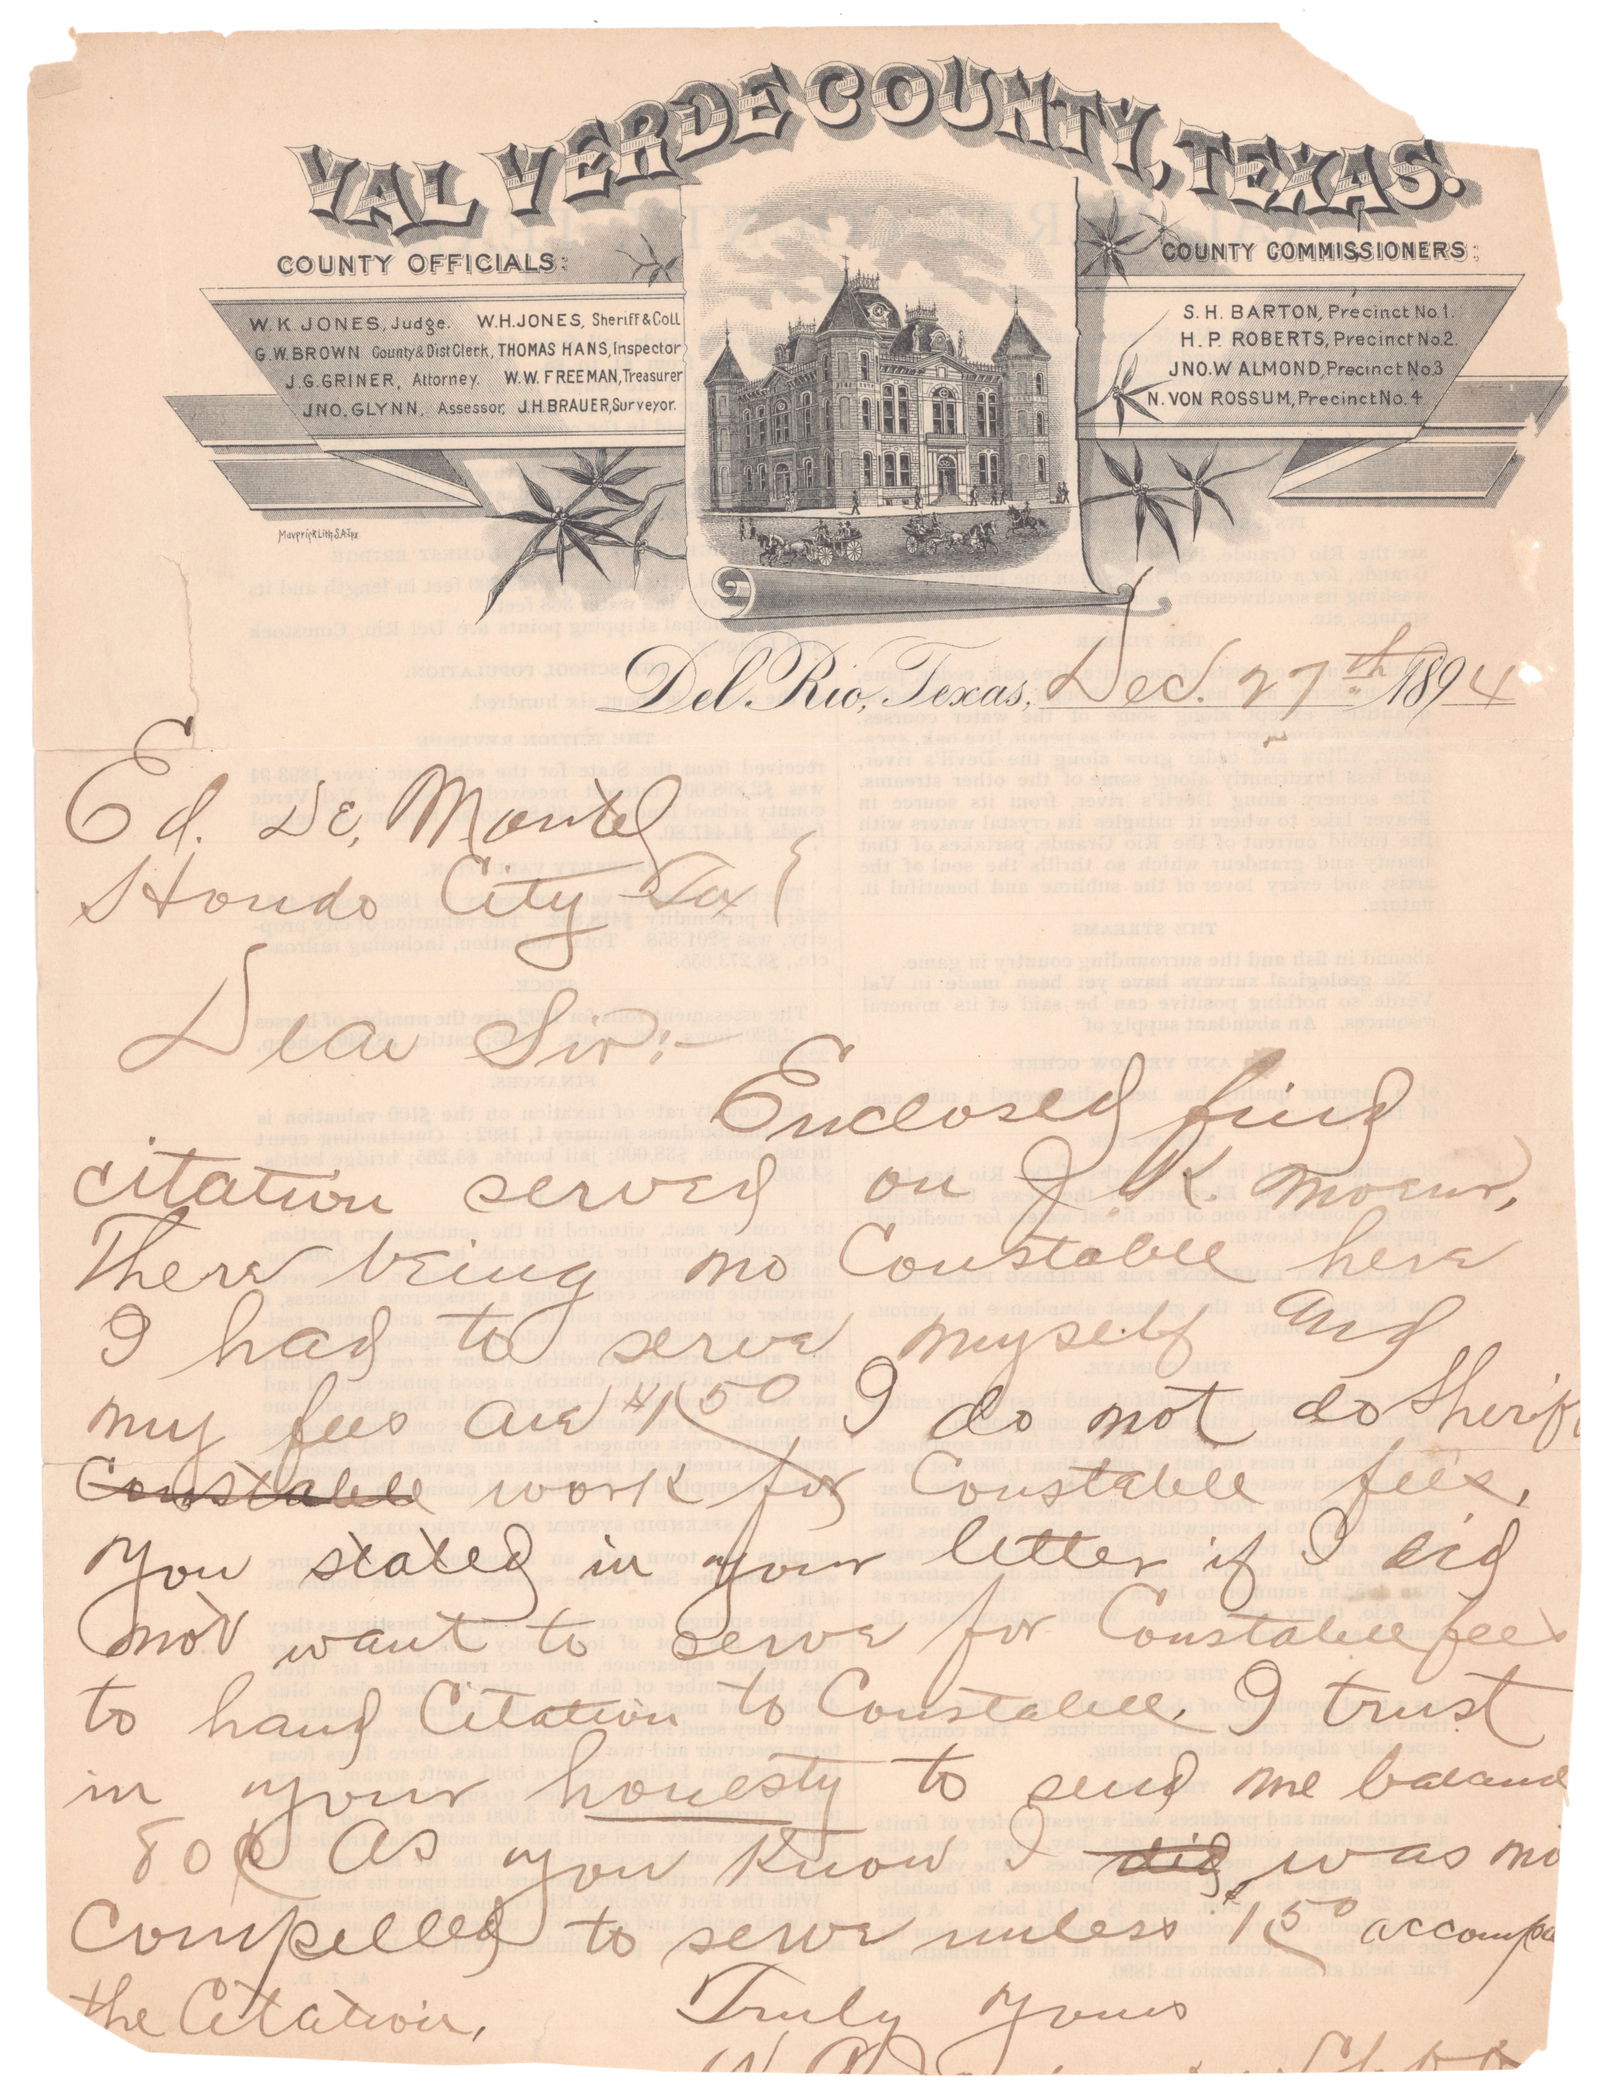 VAL VERDE COUNTY, TEXAS.
COUNTY OFFICIALS:
W. K. JONES, Judge. W.H. JONES, Sheriff & Coll
G.W. BROWN County & Dist Clerk, THOMAS HANS, Inspector
J.G. GRINER, Attorney. W.W. FREEMAN, Treasurer
JNO. GLYNN, Assessor, J.H. BRAUER, Surveyor.
COUNTY COMMISSIONERS:
S. H. BARTON, Precinct No. 1.
H. P. ROBERTS, Precinct No. 2.
JNO. W ALMOND, Precinct No. 3
N. VON ROSSUM, Precinct No. 4.
Maverick Lith S.A. Tex
Del Rio, Texas, Dec. 27th 1894
Ed. De, Montel
Hondo City Tex
Dear Sir:-
Enclosed find
citation served on J K Moeur,
There being no Constable here
I had to serve myself and
my fees are $1.50 I do not do Sherif
Constable work for Constable fees,
You stated in your letter if I did
not want to serve for Constable fees
to hand Citation to Constable, I trust
in your honesty to send me balance
80¢ As you know I did was no
Compelled to serve unless $1.50 accompa
the Citation, Truly yours